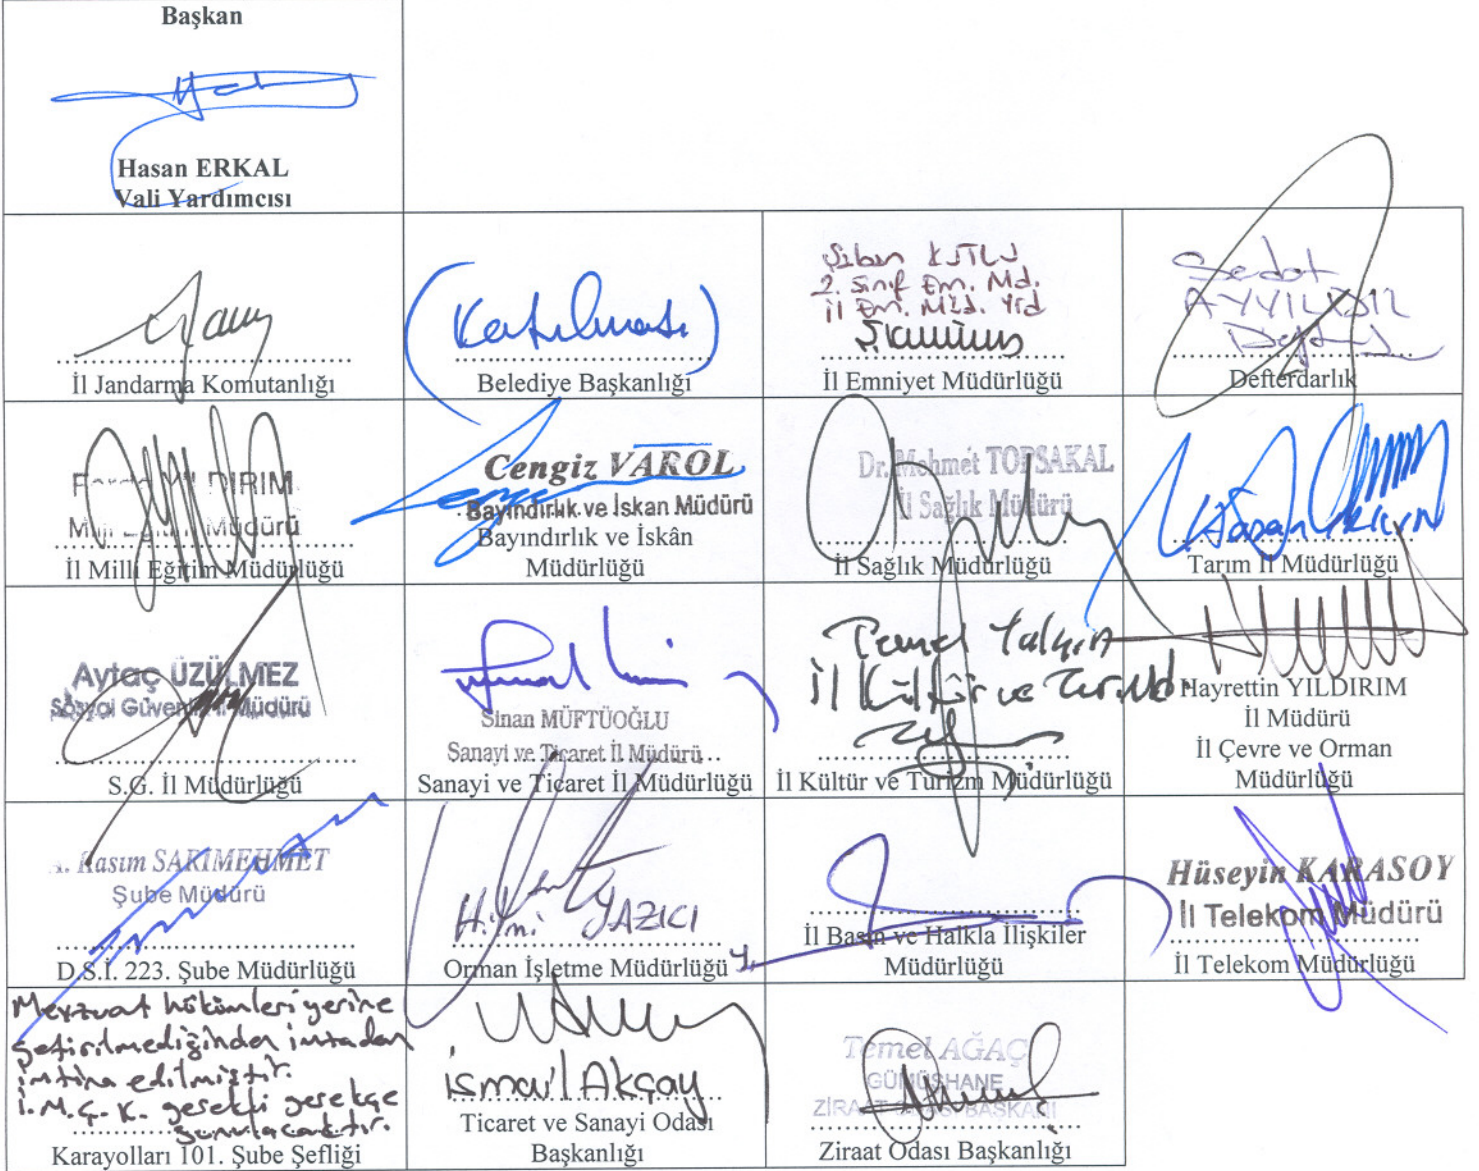 Başkan
Hasan ERKAL
Vali Yardımcısı
İl Jandarma Komutanlığı
(Katılmadı)
Belediye Başkanlığı
Şaban KUTLU
2. Sınıf Em. Md.
İl Em. Müd. Yrd
İl Emniyet Müdürlüğü
Sedat
AYYILDIZ
Defterdarlık
YILDIRIM
Milli Eğitim Müdürü
İl Milli Eğitim Müdürlüğü
Cengiz VAROL
Bayındırlık ve İskan Müdürü
Bayındırlık ve İskân
Müdürlüğü
Dr. Mehmet TOPSAKAL
İl Sağlık Müdürü
İl Sağlık Müdürlüğü
Hasan
Tarım İl Müdürlüğü
Aytaç ÜZÜLMEZ
Sosyal Güvenlik İl Müdürü
S.G. İl Müdürlüğü
Sinan MÜFTÜOĞLU
Sanayi ve Ticaret İl Müdürü
Sanayi ve Ticaret İl Müdürlüğü
Temel Yalçın
İl Kültür ve Turz. Md.
İl Kültür ve Turizm Müdürlüğü
Hayrettin YILDIRIM
İl Müdürü
İl Çevre ve Orman
Müdürlüğü
A. Kasım SARIMEHMET
Şube Müdürü
D.S.İ. 223. Şube Müdürlüğü
Hilmi YAZICI
Orman İşletme Müdürlüğü
İl Basın ve Halkla İlişkiler
Müdürlüğü
Hüseyin KARASOY
İl Telekom Müdürü
İl Telekom Müdürlüğü
Mevzuat hükümleri yerine
getirilmediğinden imzadan
imtina edilmiştir.
İ.M.Ç.K. gerekli gerekçe
sunulacaktır.
Karayolları 101. Şube Şefliği
İsmail Akçay
Ticaret ve Sanayi Odası
Başkanlığı
Temel AĞAÇ
GÜMÜŞHANE
ZİRAAT ODASI BAŞKANI
Ziraat Odası Başkanlığı